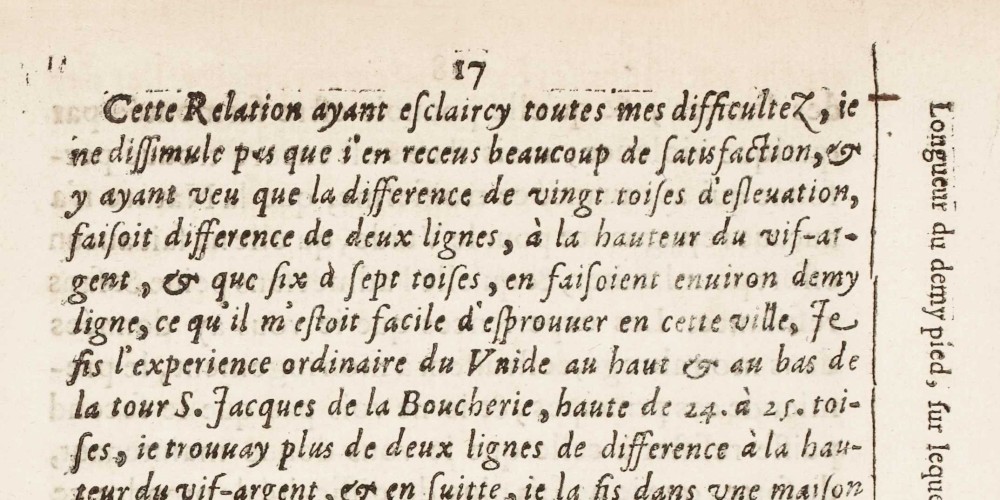 17
Cette Relation ayant eſclaircy toutes mes difficultez, ie
ne diſſimule pas que i'en receus beaucoup de ſatisfaction, &
y ayant veu que la difference de vingt toiſes d'eſleuation,
faiſoit difference de deux lignes, à la hauteur du vif-ar-
gent, & que ſix à ſept toiſes, en faiſoient enuiron demy
ligne, ce qu'il m'eſtoit facile d'eſprouuer en cette ville, Je
fis l'experience ordinaire du Vuide au haut & au bas de
la tour S. Jacques de la Boucherie, haute de 24. à 25. toi-
ſes, ie trouuay plus de deux lignes de difference à la hau-
teur du vif-argent, & en ſuitte, ie la fis dans vne maiſon
Longueur du demy pied, ſur